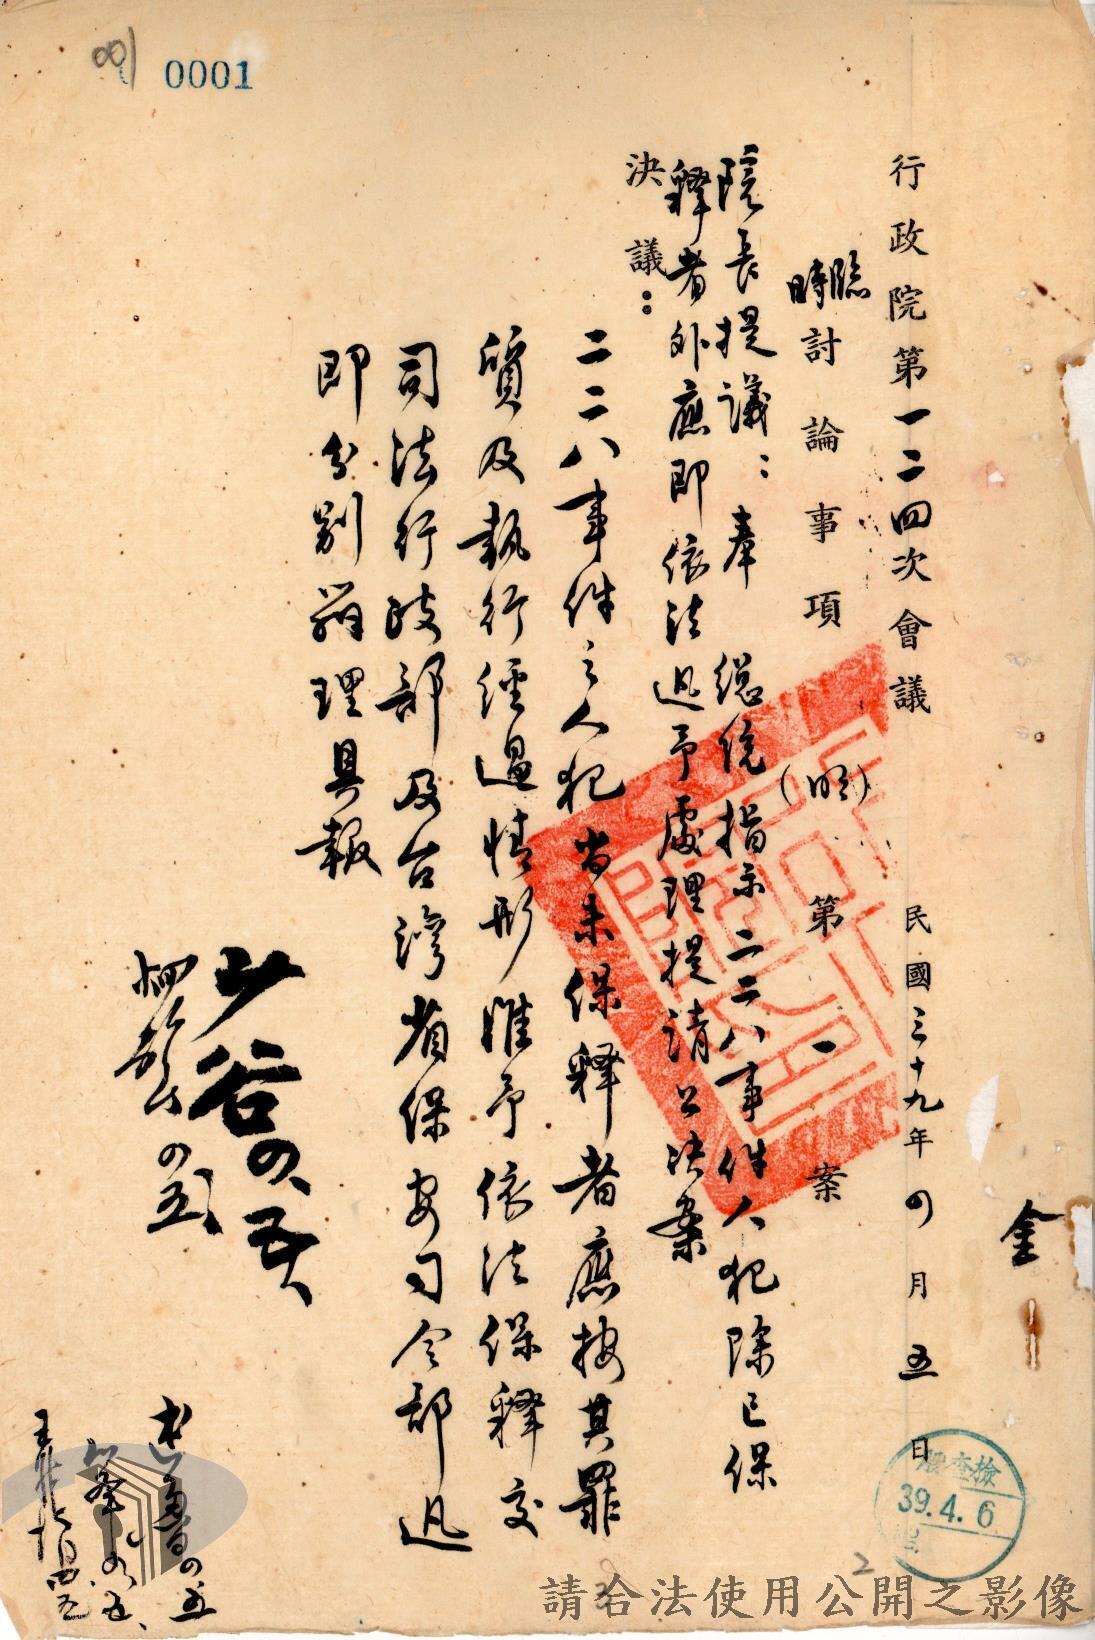 001
0001
行政院第一二四次會議
民國三十九年四月五日
臨時討論事項(畧)第一案
院長提議:奉 總統指示二二八事件人犯除已保
釋者外應即依法迅予處理提請公決案
決議:
二二八事件之人犯尚未保釋者應按其罪
質及執行經過情形准予依法保釋交
司法行政部及台灣省保安司令部迅
即分別辦理具報
少谷四、五
金
檢查
39.4.6
2
請合法使用公開之影像